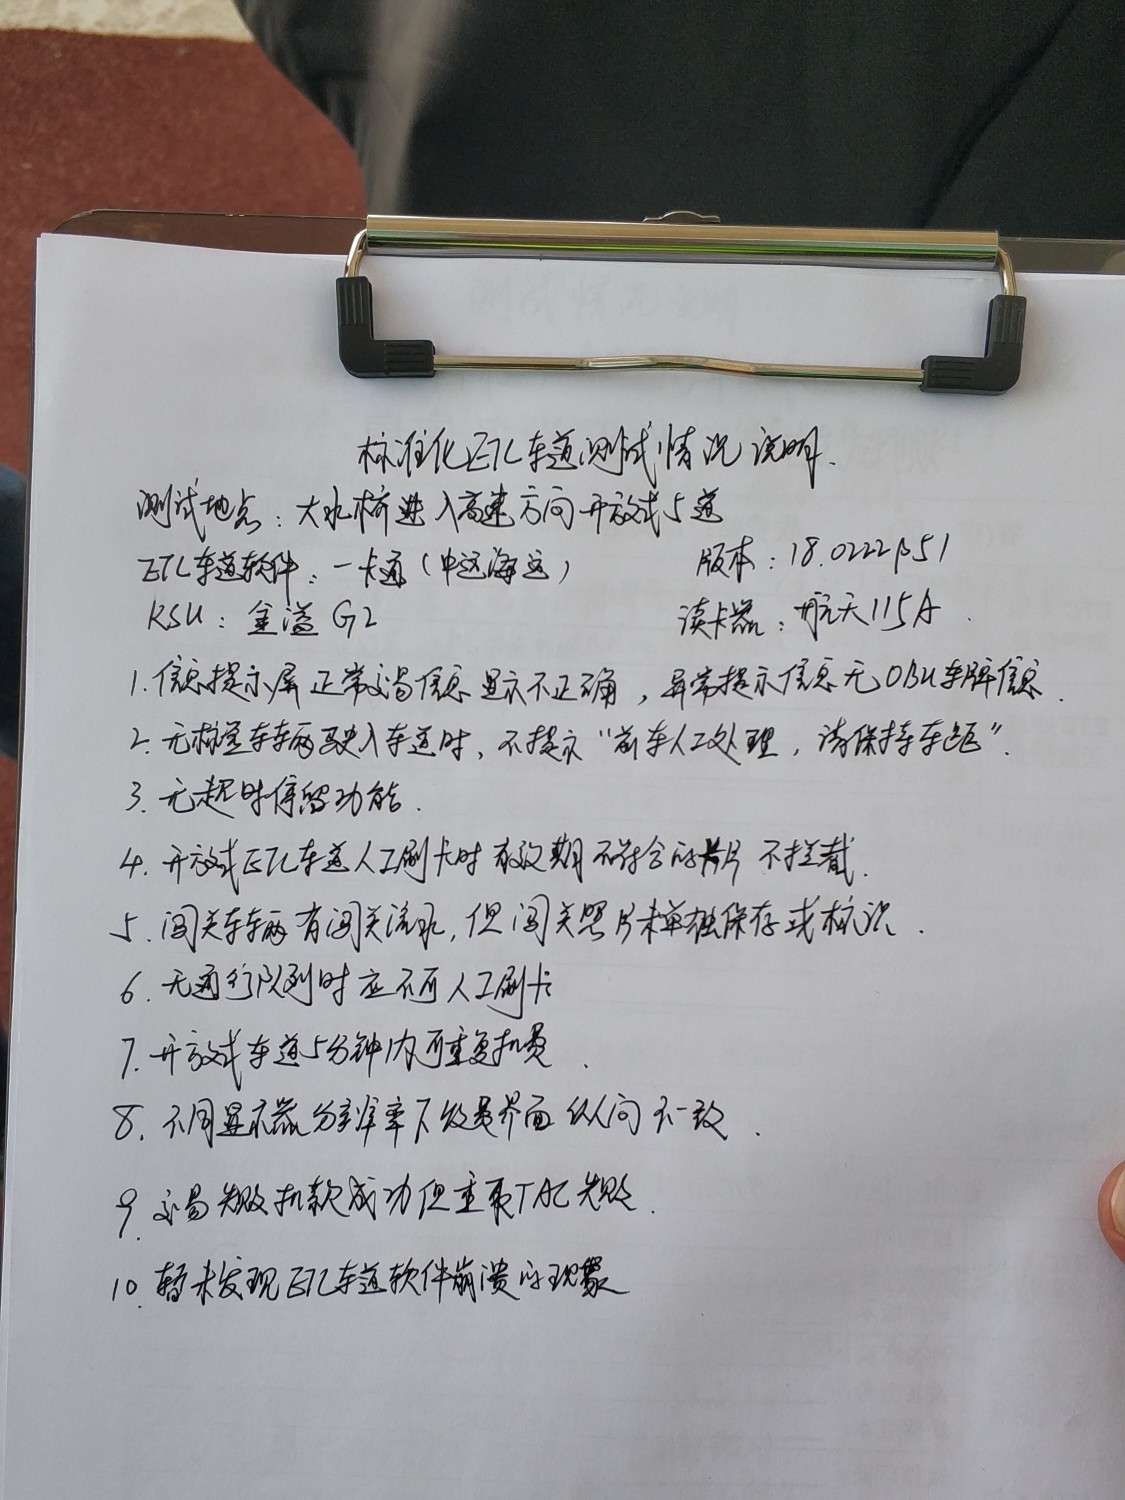 标准化ETC车道测试情况说明.
测试地点：大水桥进入高速方向开放式5道
ETC车道软件：一卡通（中远海运） 版本：18.0222β51
RSU：金溢G2 读卡器：航天115A.
1.信息提示屏正常交易信息显示不正确，异常提示信息无OBU车牌信息.
2.无标签车辆驶入车道时，不提示“前车人工处理，请保持车距”.
3.无超时停留功能.
4.开放式ETC车道人工刷卡时有效期不符合的卡片不拦截.
5.闯关车辆有闯关流水，但闯关照片未单独保存或标识.
6.无通行队列时应不可人工刷卡
7.开放式车道5分钟内可重复扣费.
8.不同显示器分辨率下收费界面纵向不一致.
9.交易失败扣款成功但重取TAC失败.
10.暂未发现ETC车道软件崩溃的现象